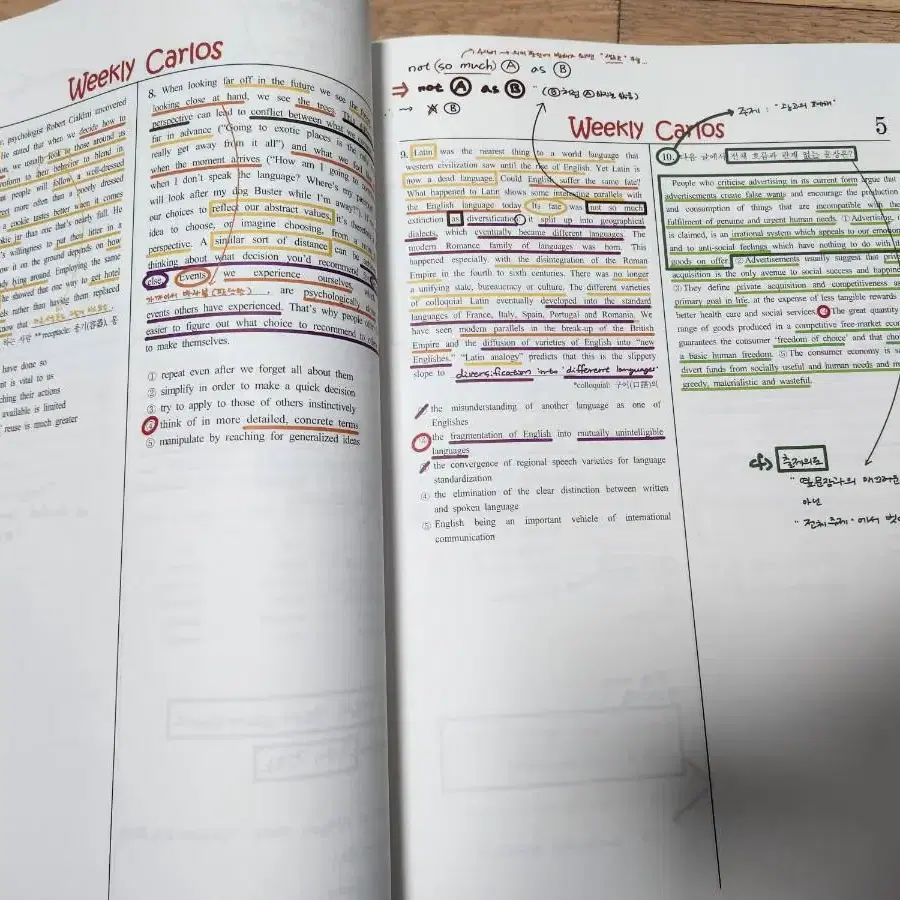 Weekly Carlos
psychologist Robert Cialdini uncovered
He stated that when we decide how to
we usually look to those around us
conform to their behavior to blend in
people will follow a well-dressed
often than a poorly dressed
a cookie tastes better when it comes
jar than one that's nearly full. He
willingness to put their litter in a
it on the ground depends on how
already hing around. Employing the same
he showed that one way to get hotel
rather than having them replaced
know that
**receptacle: 용기(容器), 통
have done so
at is vital to us
ching their actions
available is limited
reuse is much greater
8. When looking far off in the future we see the
looking close at hand, we see the trees. This
perspective can lead to conflict between what we
far in advance ("Going to exotic places is the
really get away from it all") and what we
when the moment arrives ("How am I going to
when I don't speak the language? Where's my
will look after my dog Buster while I'm away?").
our choices to reflect our abstract values, it's
idea to choose, or imagine choosing, from a
perspective. A similar sort of distance can be
thinking about what decision you'd recommend
else. Events we experience ourselves,
, are psychologically
events others have experienced. That's why people
easier to figure out what choice to recommend
to make themselves.
① repeat even after we forget all about them
② simplify in order to make a quick decision
③ try to apply to those of others instinctively
④ think of in more detailed, concrete terms
⑤ manipulate by reaching for generalized ideas
not (so much) Ⓐ as Ⓑ
⇒ not Ⓐ as Ⓑ
→ A Ⓑ
Weekly Carlos
5
9. Latin was the nearest thing to a world language that
western civilization saw until the rise of English. Yet Latin is
now a dead language. Could English suffer the same fate?
What happened to Latin shows some interesting parallels with
the English language today. Its fate was not so much
extinction as diversification; it split up into geographical
dialects, which eventually became different languages. The
modern Romance family of languages was born. This
happened especially with the disintegration of the Roman
Empire in the fourth to sixth centuries. There was no longer
a unifying state, bureaucracy or culture. The different varieties
of colloquial Latin eventually developed into the standard
languages of France, Italy, Spain, Portugal and Romania. We
have seen modern parallels in the break-up of the British
Empire and the diffusion of varieties of English into "new
Englishes." "Latin analogy" predicts that this is the slippery
slope to diversification into 'different languages'
*colloquial: 구어(口語)의
① the misunderstanding of another language as one of
Englishes
② the fragmentation of English into mutually unintelligible
languages
③ the convergence of regional speech varieties for language
standardization
④ the elimination of the clear distinction between written
and spoken language
⑤ English being an important vehicle of international
communication
주제 :
10. 다음 글에서 전체 흐름과 관계 없는 문장은?
People who criticise advertising in its current form argue that
advertisements create false wants and encourage the production
and consumption of things that are incompatible with the
fulfilment of genuine and urgent human needs. ① Advertising, it
is claimed, is an irrational system which appeals to our emotions
and to anti-social feelings which have nothing to do with
goods on offer. ② Advertisements usually suggest that private
acquisition is the only avenue to social success and happiness
③ They define private acquisition and competitiveness as
primary goal in life, at the expense of less tangible rewards
better health care and social services. ④ The great quantity
range of goods produced in a competitive free-market economy
guarantees the consumer 'freedom of choice' and that
a basic human freedom. ⑤ The consumer economy is
divert funds from socially useful and human needs and
greedy, materialistic and wasteful.
cf) 출제의도
아닌
"전체 주제"에서